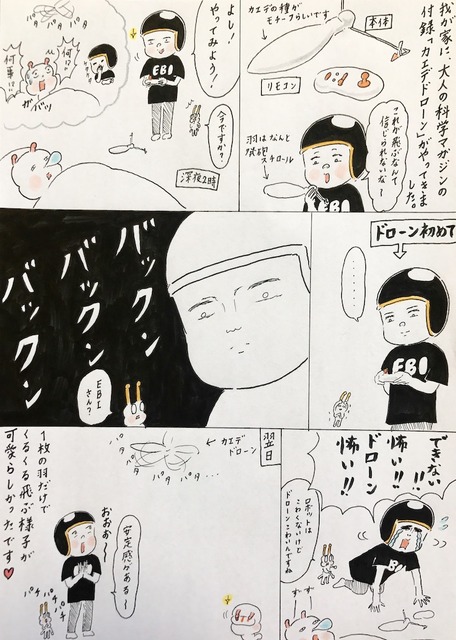 我が家に、大人の科学マガジンの
付録「カエデドローン」がやってきました。
カエデの種が
モチーフらしいです
本体
リモコン
これが飛ぶなんて
信じられないな〜
羽はなんと
発砲
スチロール
EBI
よし!
やってみよう!
EBI
今ですか?
深夜2時
パタパタ
何!?
何事!?
ガバッ
ドローン初めて
………
EBI
バックン
バックン
バックン
EBI
さん?
できない
!!
怖い!!
ドローン
怖い!!
ロボットは
こわくないのに
ドローンこわいんですね
翌日
カエデ
ドローン
パタ
パタ
パタ
パタ…
安定感がある〜
おおぉ〜
パチパチパチ
1枚の羽だけで
くるくる飛ぶ様子が
可愛らしかったです♥